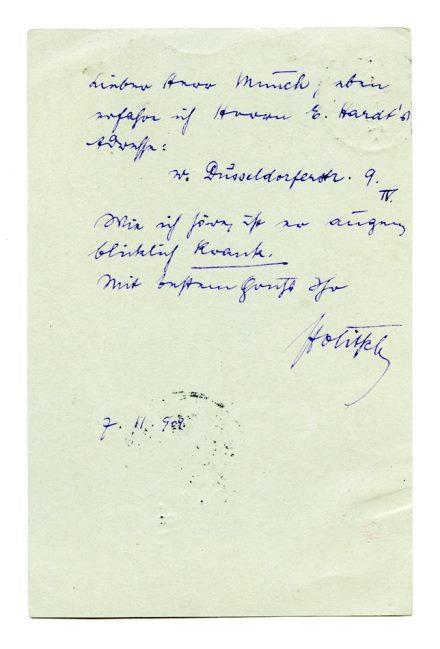 Lieber Herr Munch, eben
erfahre ich Herrn E. Hardt's
Adresse:
W. Düsseldorferstr. 9.
IV.
Wie ich höre, ist er augen
blicklich krank.
Mit bestem Gruß Ihr
Holitscher
7. 11. 902